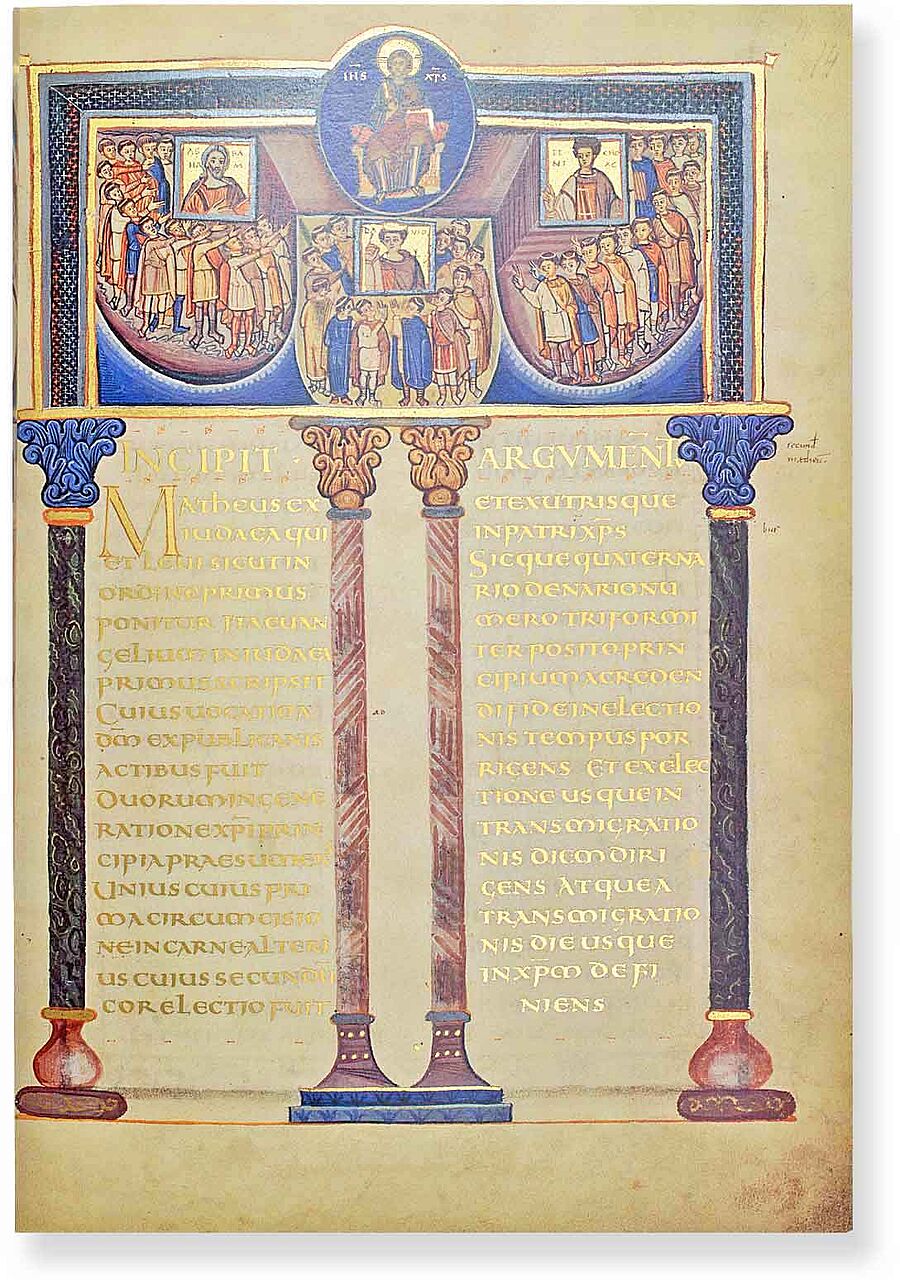 IHS XPS
INCIPIT
MATHEUS EX
IUDAEA QUI
ET LEUI SICUT IN
ORDINE PRIMUS
PONITUR ITA EUAN
GELIUM IN IUDAEA
PRIMUS SCRIPSIT
CUIUS UOCATIO A
DM̄ EX PUBLICANIS
ACTIBUS FUIT
DUORUM IN GENE
RATIONE XP̄I PRIN
CIPIA PRAESUMENS
UNIUS CUIUS PRI
MA CIRCUMCISIO
NE IN CARNE ALTERI
US CUIUS SECUNDU
COR ELECTIO FUIT
ARGVMENT
ET EX UTRISQUE
IN PATRI XP̄S
SICQUE QUATERNA
RIO DENARIO NU
MERO TRIFORMI
TER POSITO PRIN
CIPIUM A CREDEN
DI FIDE IN ELECTIO
NIS TEMPUS POR
RIGENS ET EX ELEC
TIONE USQUE IN
TRANSMIGRATIO
NIS DIEM DIRI
GENS ATQUE A
TRANSMIGRATIO
NIS DIE USQUE
IN XP̄M DEFI
NIENS